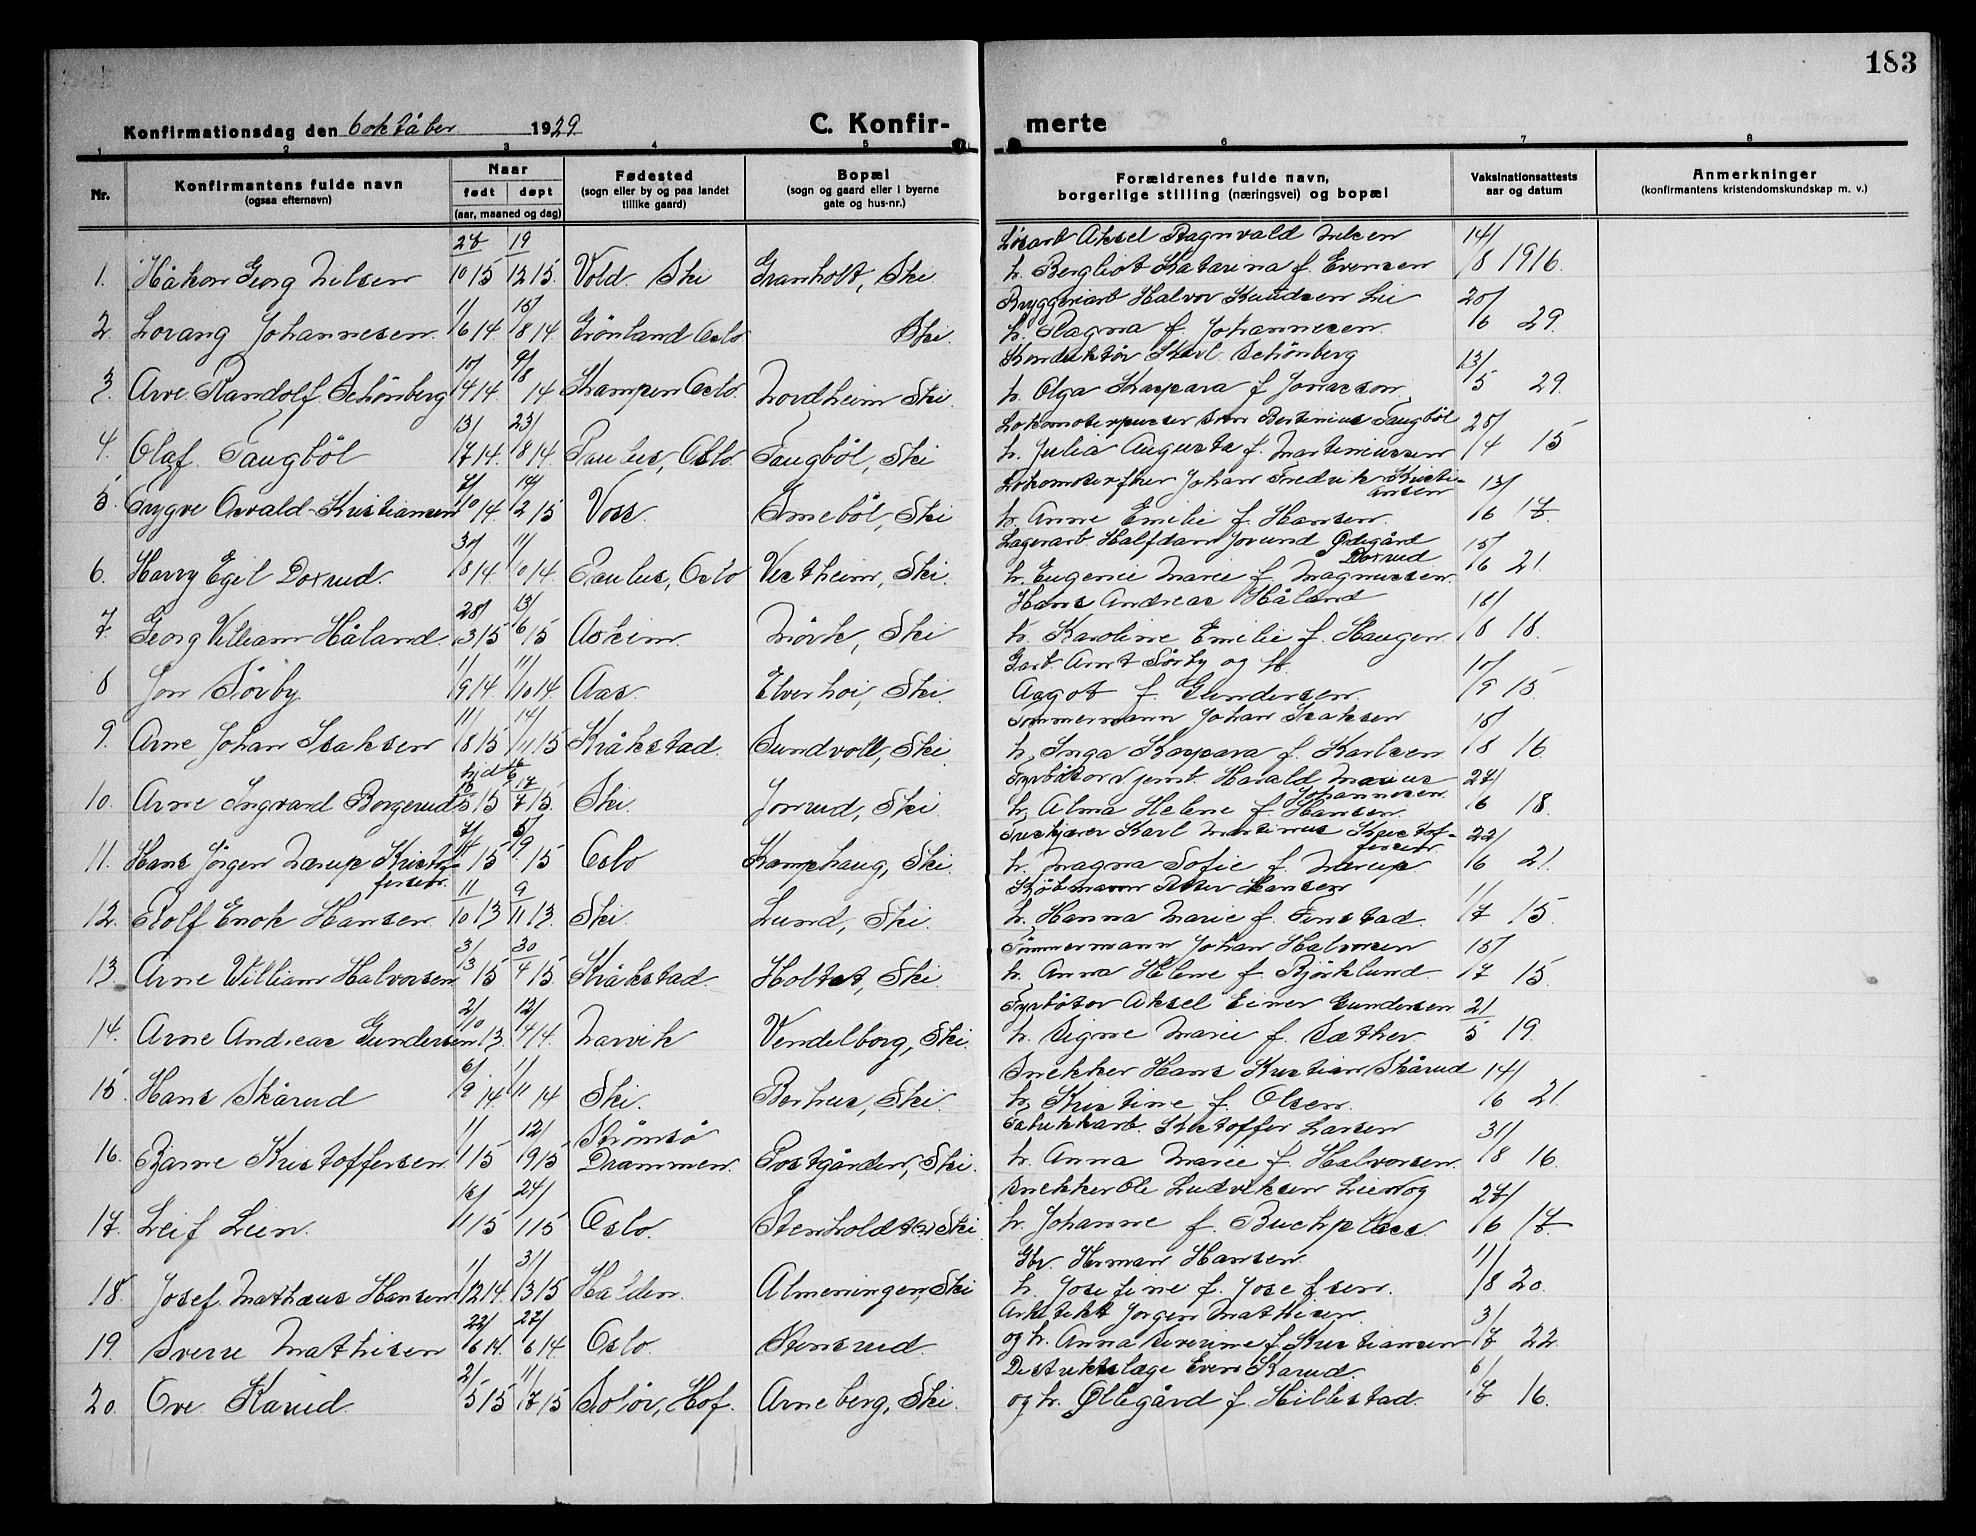 183
Konfirmationsdag den 6 oktåber 1929
C. Konfir-
merte
1 2 3 4 5 6 7 8
Nr.
Konfirmantens fulde navn
(ogsaa efternavn)
Naar
født døpt
(aar, maaned og dag)
Fødested
(sogn eller by og paa landet
tillike gaard)
Bopæl
(sogn og gaard eller i byerne
gate og hus-nr.)
Forældrenes fulde navn,
borgerlige stilling (næringsvei) og bopæl
Vaksinationsattests
aar og datum
Anmerkninger
(konfirmantens kristendomskundskap m. v.)
Løsarb Aksel Ragnvald Nilsen 14/
1. Håkon Georg Nilsen 28/10 15 19/12 15 Vold Ski Granholt, Ski. h. Bergliot Katarina f. Evensen /8 1916.
Bryggeriarb Halvor Knudsen Lie 20/
2. Lorang Johannesen 1/6 14. 15/8 14 Grönland Oslo Ski. h. Ragna f. Johannesen. /6 29.
Konduktör Karl Schönberg 13/
3. Arve Randolf Schönberg 14 9/8 14 Kampen Oslo. Nordheim Ski. h. Olga Kaspara f Jonasson /5 29.
Bertinius Taugböl
4. Olaf Taugböl 14. 23/8 14. Paulus, Oslo. Taugböl, Ski h. Julia Augusta f. Martiniussen /4 15
Johan Fredrik Kristi-
ansen 13/
5. Trygve Osvald Kristiansen /10 14. 14/2 15 Voss. Smeböl, Ski h. Anne Emilie f. Hansen. /6 17.
Lagerarb Halfdan Jorund Ødegård
Doxrud 15/
6. Harry Egil Doxrud. 30/8 14 11/10 14. Paulus, Oslo Vestheim, Ski. h. Eugenie Marie f Magnussen. /6 21.
Hans Andreas Håland 18/
7. Georg William Håland. 28/3 15 13/6 15 Askim. Mörk, Ski h. Karoline Emilie f. Haugen. /8 18.
Garb. Arnt Sörby og h.
8 Jon Sörby 1/9 14. 11/10 14 Aas. Elverhoi, Ski. Aagot f. Gundersen. /9 15.
Tömmermann Johan Isaksen 18/
9. Arne Johan Isaksen 11/8 15 14/11 15 Kråkstad. Sundvoll, Ski. h. Inga Kaspara f. Karlsen /8 16
hjd 16/6
Harald Marius
Johannesen. 27/
10. Arne Ingvard Borgerud /5 15 17/7 15. Ski. Jonrud, Ski. h. Alma Helene f Hansen. /6 18.
Karl Martinus Kristof-
fersen. 22/
11. Hans Jörgen Nærup Kristof-
fersen. 15 5/9 15 Oslo Kamphaug, Ski. h. Magna Sofie f. Nærup. /6 21.
Köbmann Peter Hansen 1/
12. Rolf Enok Hansen. 11/10 13 9/11 13. Ski. Lund, Ski. h. Hanna Marie f. Finstad. /7 15.
Tömmermann Johan Halvorsen
13. Arne William Halvorsen 3/3 15 30/4 15 Kråkstad. Holtet, Ski. h. Anna Helene f Björklund /7 15.
Fyrböter Aksel Einer Gundersen 21
14. Arne Andreas Gundersen 2/10 13. 12/4 14. Narvik Vendelborg, Ski. h. Signe Marie f. Sæther 5 19.
Snekker Hans Kristian Skårud 14/
15. Hans Skårud 6/9 14. 1/11 14 Ski. Borhus, Ski. h. Kristine f. Olsen. /6 21.
Fabrikkarb. Kristoffer Larsen 31/
16. Bjarne Kristoffersen 1/1 15 12/9 15 Strömsö
Drammen. Postgården, Ski. h. Anna Marie f Halvorsen /8 16.
Snekker Ole Ludviksen Lien og 27/
17. Leif Lien. /1 15 24/1 15 Oslo. Stenholdt, Ski. h. Johanne f. Buchplass. /6 17.
Gbr. Herman Hansen. 11/
18. Josef Mathæus Hansen 1/12 14. 31/3 15 Halden. Almeningen, Ski h. Josefine f. Josefsen. /8 20.
Arkitekt Jörgen Mathisen. 3/
19. Sverre Mathisen 22/6 14. 27/6 14 Oslo. Stensrud. og h. Anna Severine f. Kristiansen /7 22.
Distriktslæge Even Karud. 6/
20. Ove Karud. 2/5 15 11/7 15 Solör, Hof. Arneberg, Ski. og h. Øllegård f. Hillestad. /7 16.